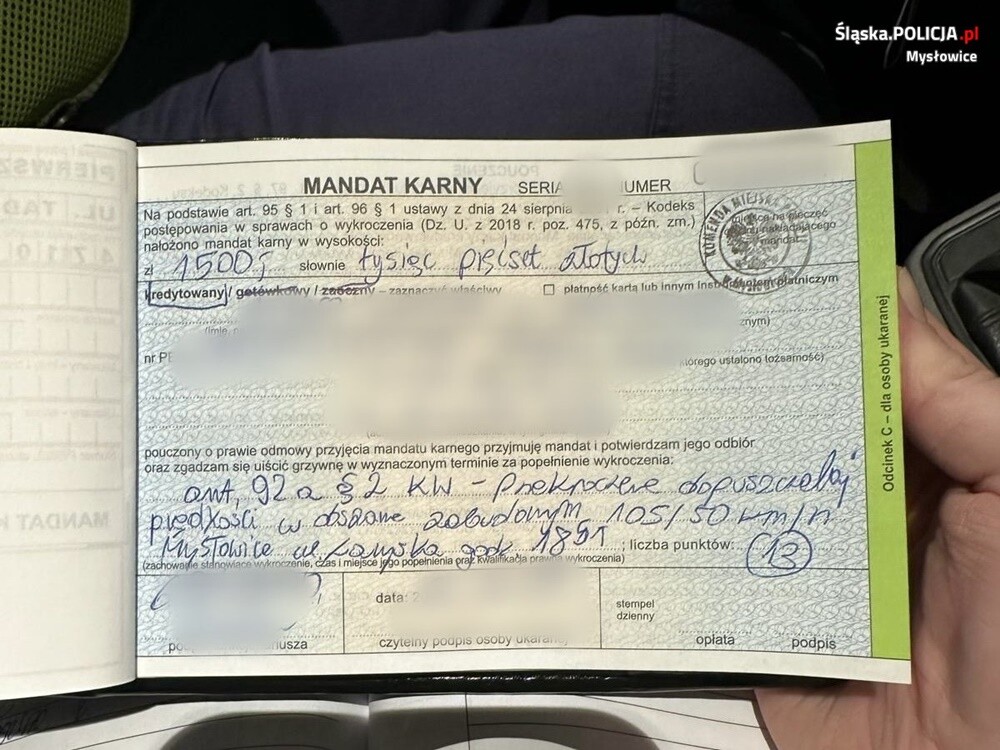 Śląska.POLICJA.pl
Mysłowice
MANDAT KARNY SERIA NUMER
Na podstawie art. 95 § 1 i art. 96 § 1 ustawy z dnia 24 sierpnia r. – Kodeks
postępowania w sprawach o wykroczenia (Dz. U. z 2018 r. poz. 475, z późn. zm.)
nałożono mandat karny w wysokości:
miejsce na pieczęć
nakładającego
mandat
KOMENDA MIEJSKA
zł 1500,- słownie tysiąc pięćset złotych
kredytowany / gotówkowy / zaoczny – zaznaczyć właściwy płatność kartą lub innym instrumentem płatniczym
nr
którego ustalono tożsamość)
pouczony o prawie odmowy przyjęcia mandatu karnego przyjmuję mandat i potwierdzam jego odbiór
oraz zgadzam się uiścić grzywnę w wyznaczonym terminie za popełnienie wykroczenia:
art. 92a §2 KW – Przekroczenie dopuszczalnej
prędkości w obszarze zabudowanym 105/50 km/h
Mysłowice ul. godz. ; liczba punktów: 13
(zachowanie stanowiące wykroczenie, czas i miejsce jego popełnienia oraz kwalifikacja prawna wykroczenia)
data:
stempel
dzienny
czytelny podpis osoby ukaranej
opłata podpis
Odcinek C – dla osoby ukaranej
POUCZENIE
PIERWSZ
UL.
MANDAT K